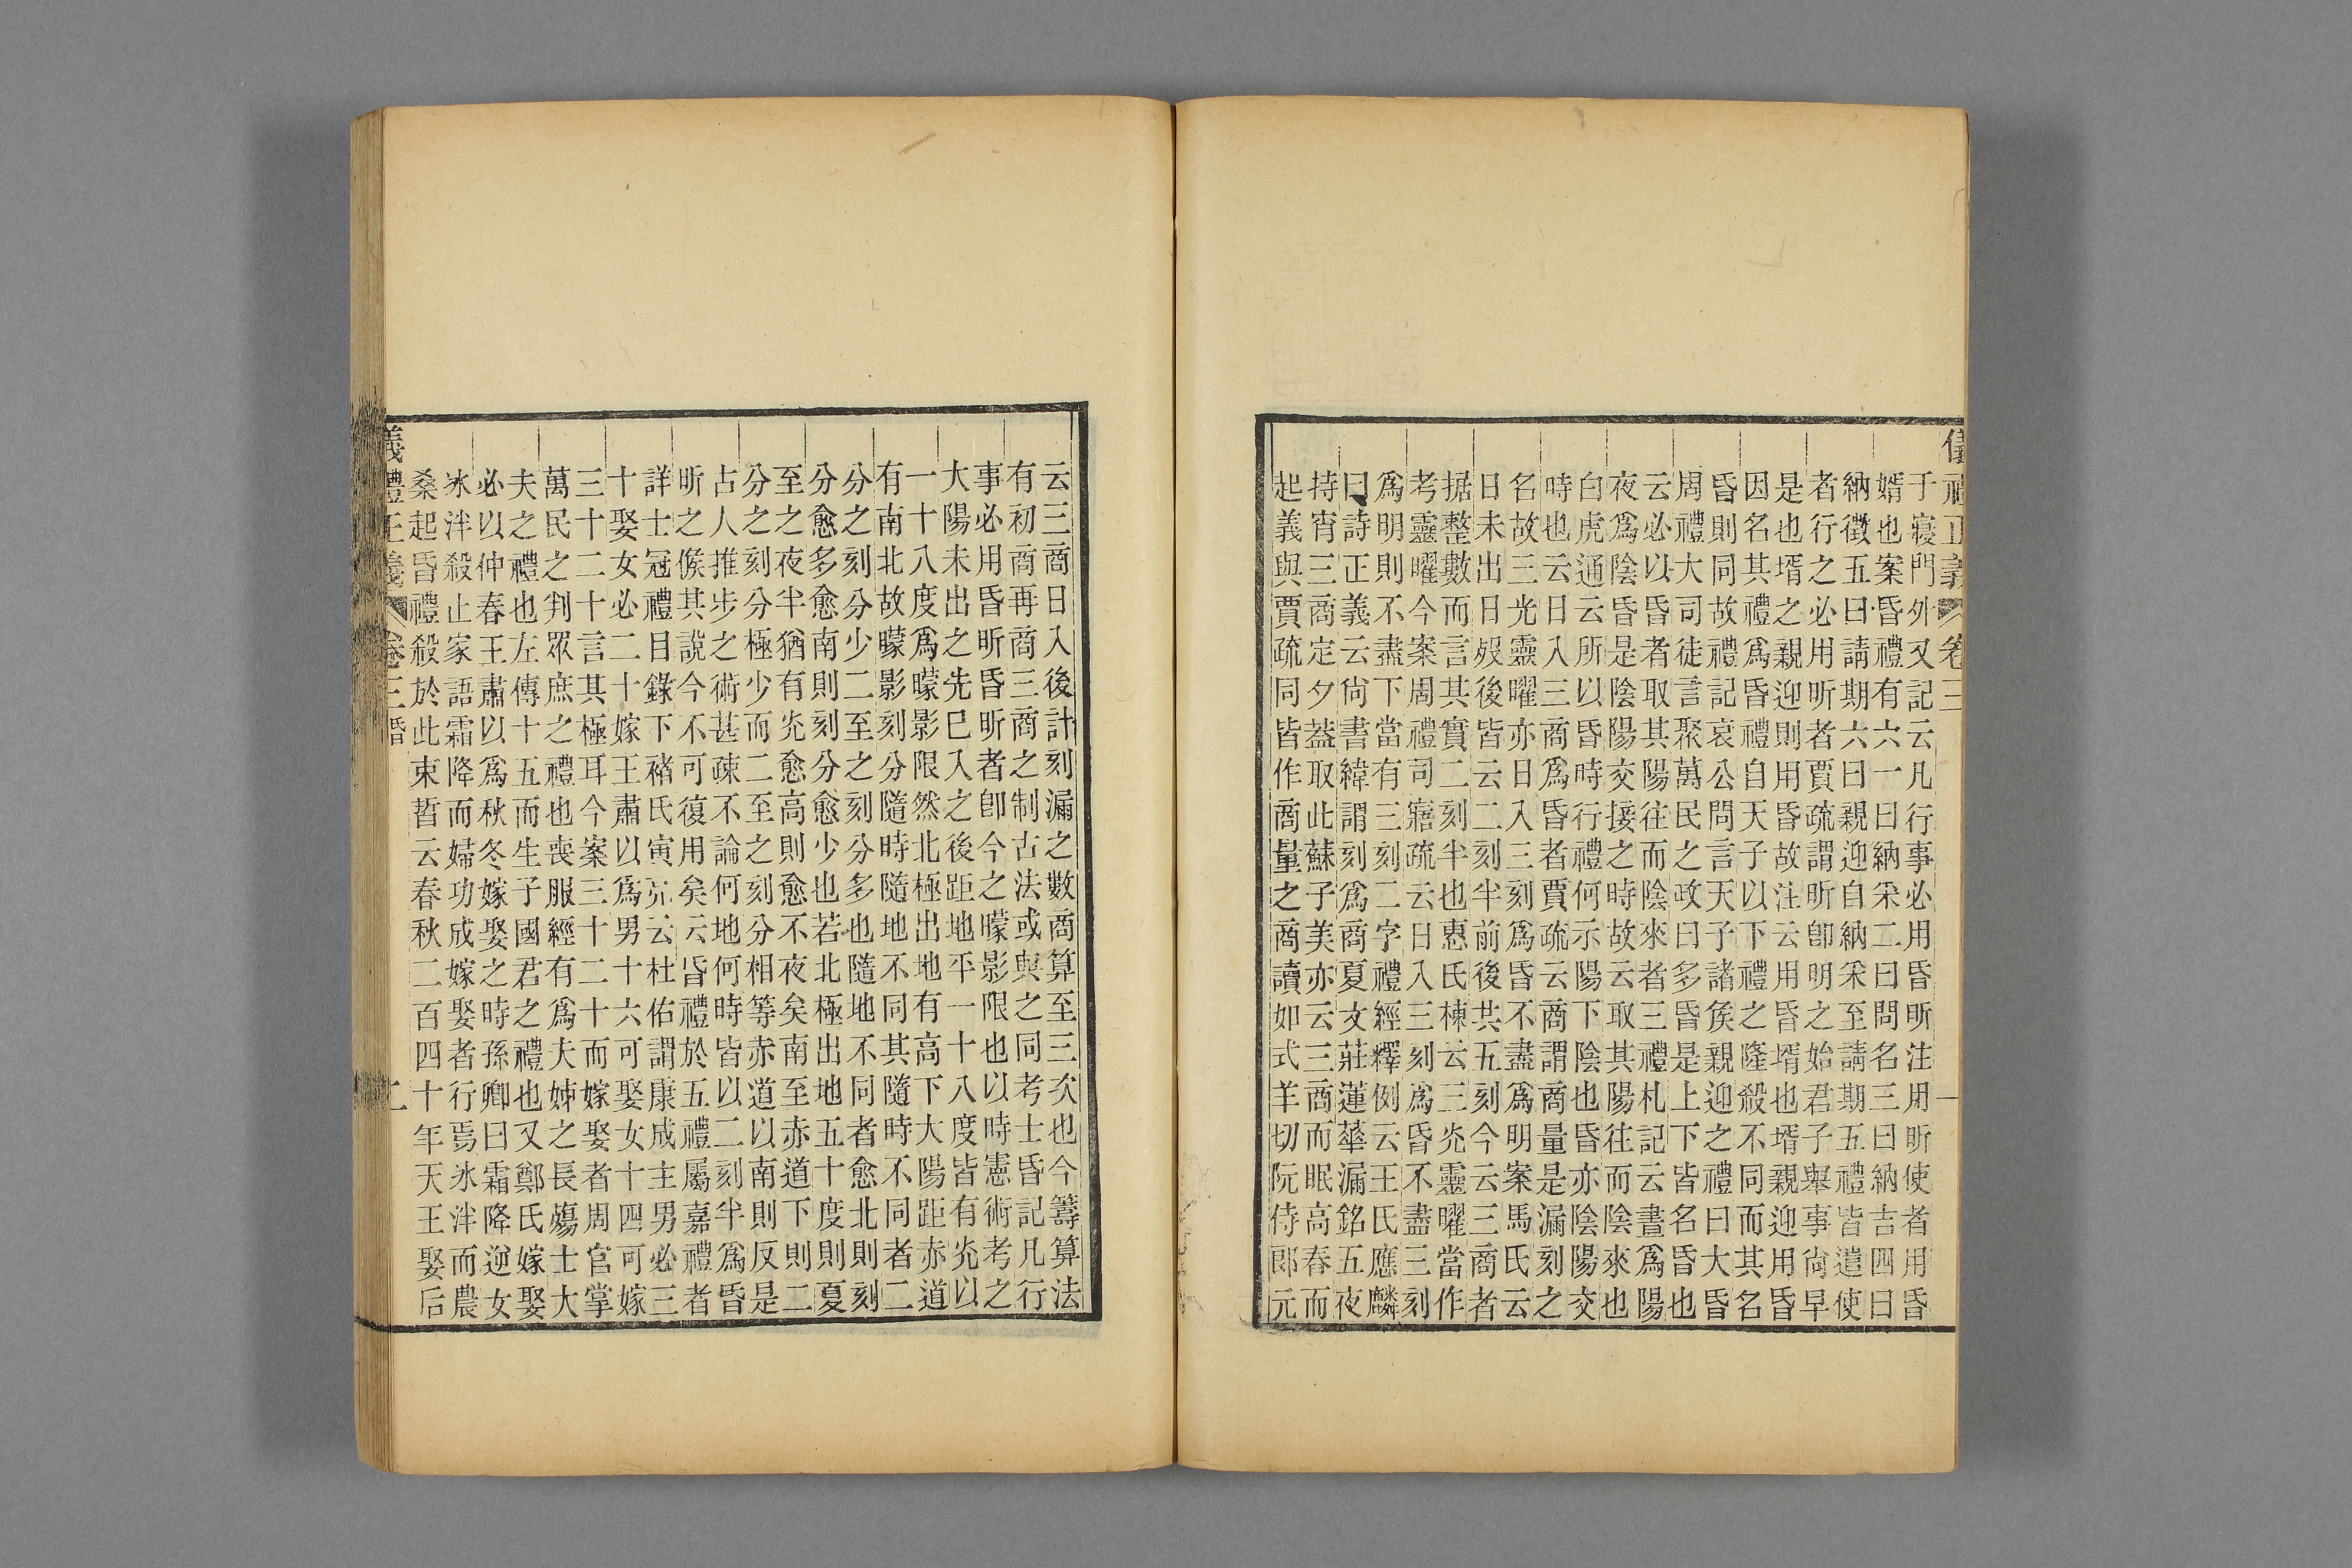 儀禮正義 卷三 一
于寢門外又記云凡行事必用昏昕注用昕使者用昏
婿也案昏禮有六一曰納采二曰問名三曰納吉四曰
納徵五曰請期六曰親迎自納采至請期五禮皆遣使
者行之必用昕者賈疏謂昕卽明之始君子舉事尙早
是也壻之親迎則用昏故注云用昏壻也壻親迎用昏
因名其禮爲昏禮自天子以下禮之隆殺不同而其名
昏則同故禮記哀公問言天子諸矦親迎之禮曰大昏
周禮大司徒言聚萬民之政曰多昏是上下皆名昏也
云必以昏者取其陽往而陰來者三禮札記云晝爲陽
夜爲陰昏是陰陽交接之時故云取其陽往而陰來也
白虎通云所以昏時行禮何示陽下陰也昏亦陰陽交
時也云日入三商爲昏者賈疏云商謂商量是漏刻之
名故三光靈曜亦日入三刻爲昏不盡爲明案馬氏云
日未出日歿後皆云二刻半前後共五刻今云三商者
据整數而言其實二刻半也惠氏棟云三光靈曜當作
考靈曜今案周禮司寤疏云日入三刻爲昏不盡三刻
爲明則不盡下當有三刻二字禮經釋例云王氏應麟
曰詩正義云尙書緯謂刻爲商夏文莊蓮華漏銘五夜
持宵三商定夕葢取此蘇子美亦云三商而眠高春而
起義與賈疏同皆作商量之商讀如式羊切阮侍郎元
云三商日入後計刻漏之數商算至三次也今籌算法
有初商再商三商之制古法或與之同考士昏記凡行
事必用昏昕昏昕者卽今之曚影限也以時憲術考之
大陽未出之先已入之後距地地平一十八度皆有光以
一十八度爲曚影限然北極出地有高下大陽距赤道
有南北故曚影刻分隨時隨地不同其隨時不同者二
分之刻分少二至之刻分多也隨地不同者愈北則刻
分愈多愈南則刻分愈少也若北極出地五十度則夏
至之夜半猶有光愈高則愈不夜矣南至赤道下則二
分之刻分極少而二至之刻分相等赤道以南則反是
占人推步之術甚疎不論何地何時皆以二刻半爲昏
昕之候其說今不可復用矣云昏禮於五禮屬嘉禮者
詳士冠禮目錄下褚氏寅亮云杜佑謂康成主男必三
十娶女必二十嫁王肅以爲男十六可娶女十四可嫁
三十二十言其極耳今案三十二十而嫁娶者周官掌
萬民之判眾庶之禮也喪服經有爲夫姊之長殤士大
夫之禮也左傳十五而生子國君之禮也又鄭氏嫁娶
必以仲春王肅以爲秋冬嫁娶之時孫卿曰霜降逆女
冰泮殺止家語霜降而婦功成嫁娶者行焉冰泮而農
桑起昏禮殺於此束晳云春秋二百四十年天王娶后
儀禮正義 卷三昏 二